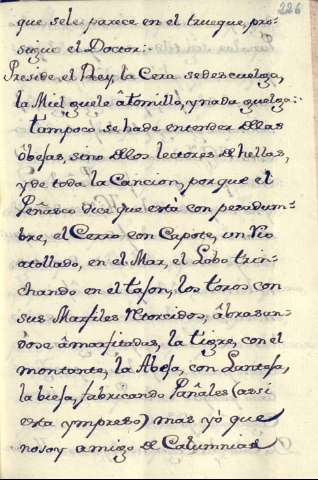 226
que sele parece en el trueque, pro-
sigue el Doctor:-
Preside el Rey, la Cera sedescuelga,
la Miel guele âtomillo, y nada guelga:-
tampoco se hade entender dellas
òbejas, sino dellos lectores de hellas,
y de toda la Cancion, porque el
Peñasco dice que està con pesadum-
bre, el Cerro con Capote, un Rio
atollado, en el Mar, el Lobo trin-
chando en el tajon, los toros con
sus Marfiles Retorcidos, âbrasan-
dose âmarfitadas, la tigre, con el
montante, la Abeja, con
la bieja, fabricando Pañales (assi
esta ympreso) mas yò que
nosoy amigo de Calumnias